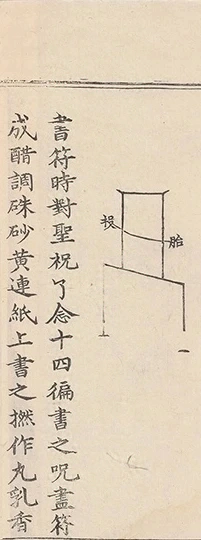 投
胎
書符時對聖祝了念十四徧書之咒盡符
成醋調硃砂黃連紙上書之撚作丸乳香